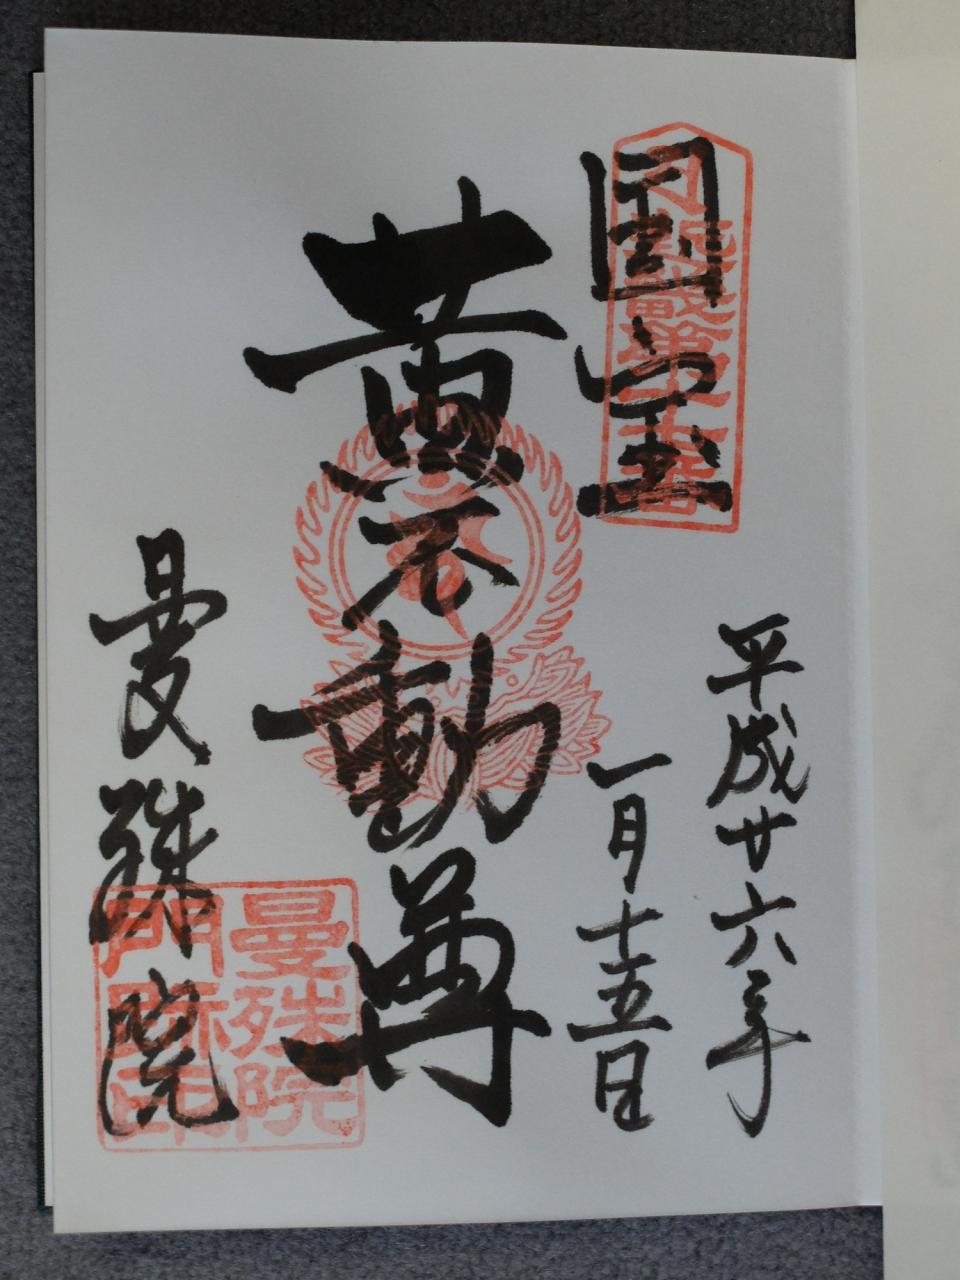 国宝
平成廿六年
一月十五日
黄不動尊
曼殊院
近畿第十七番
曼殊院
門跡印